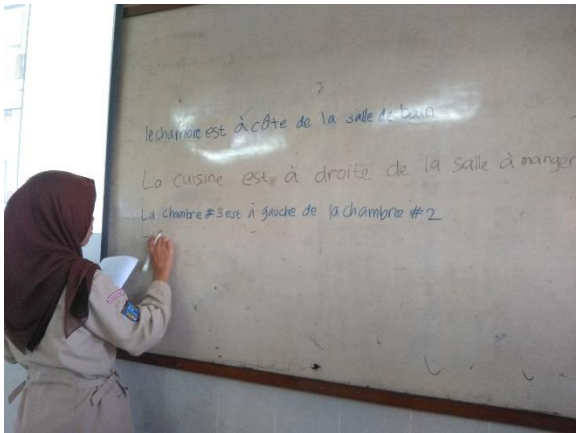 le chambre est à côte de la salle de bain
La cuisine est à droite de la salle à manger
La chambre #3 est à gauche de la chambre #2